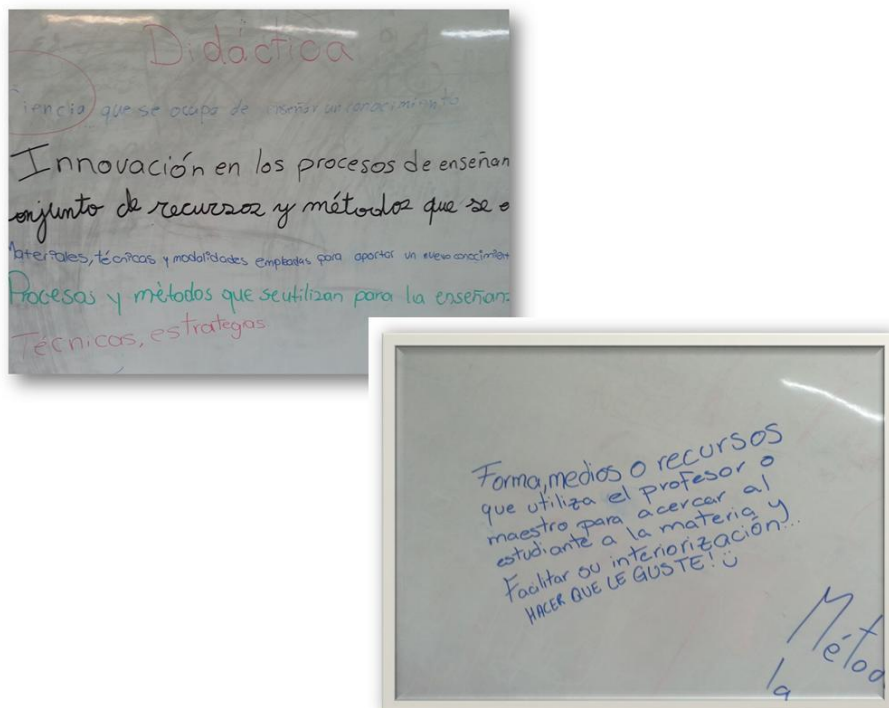 Didáctica
iencia que se ocupa de enseñar un conocimiento
Innovación en los procesos de enseñan
onjunto de recursos y métodos que se
Materiales, técnicas y modalidades empleadas para aportar un nuevo conocimien
Procesos y métodos que se utilizan para la enseñan
Técnicas, estrategas
Forma, medios o recursos
que utiliza el profesor o
maestro para acercar al
estudiante a la materia y
Facilitar su interiorización...
HACER QUE LE GUSTE!
Métod
la